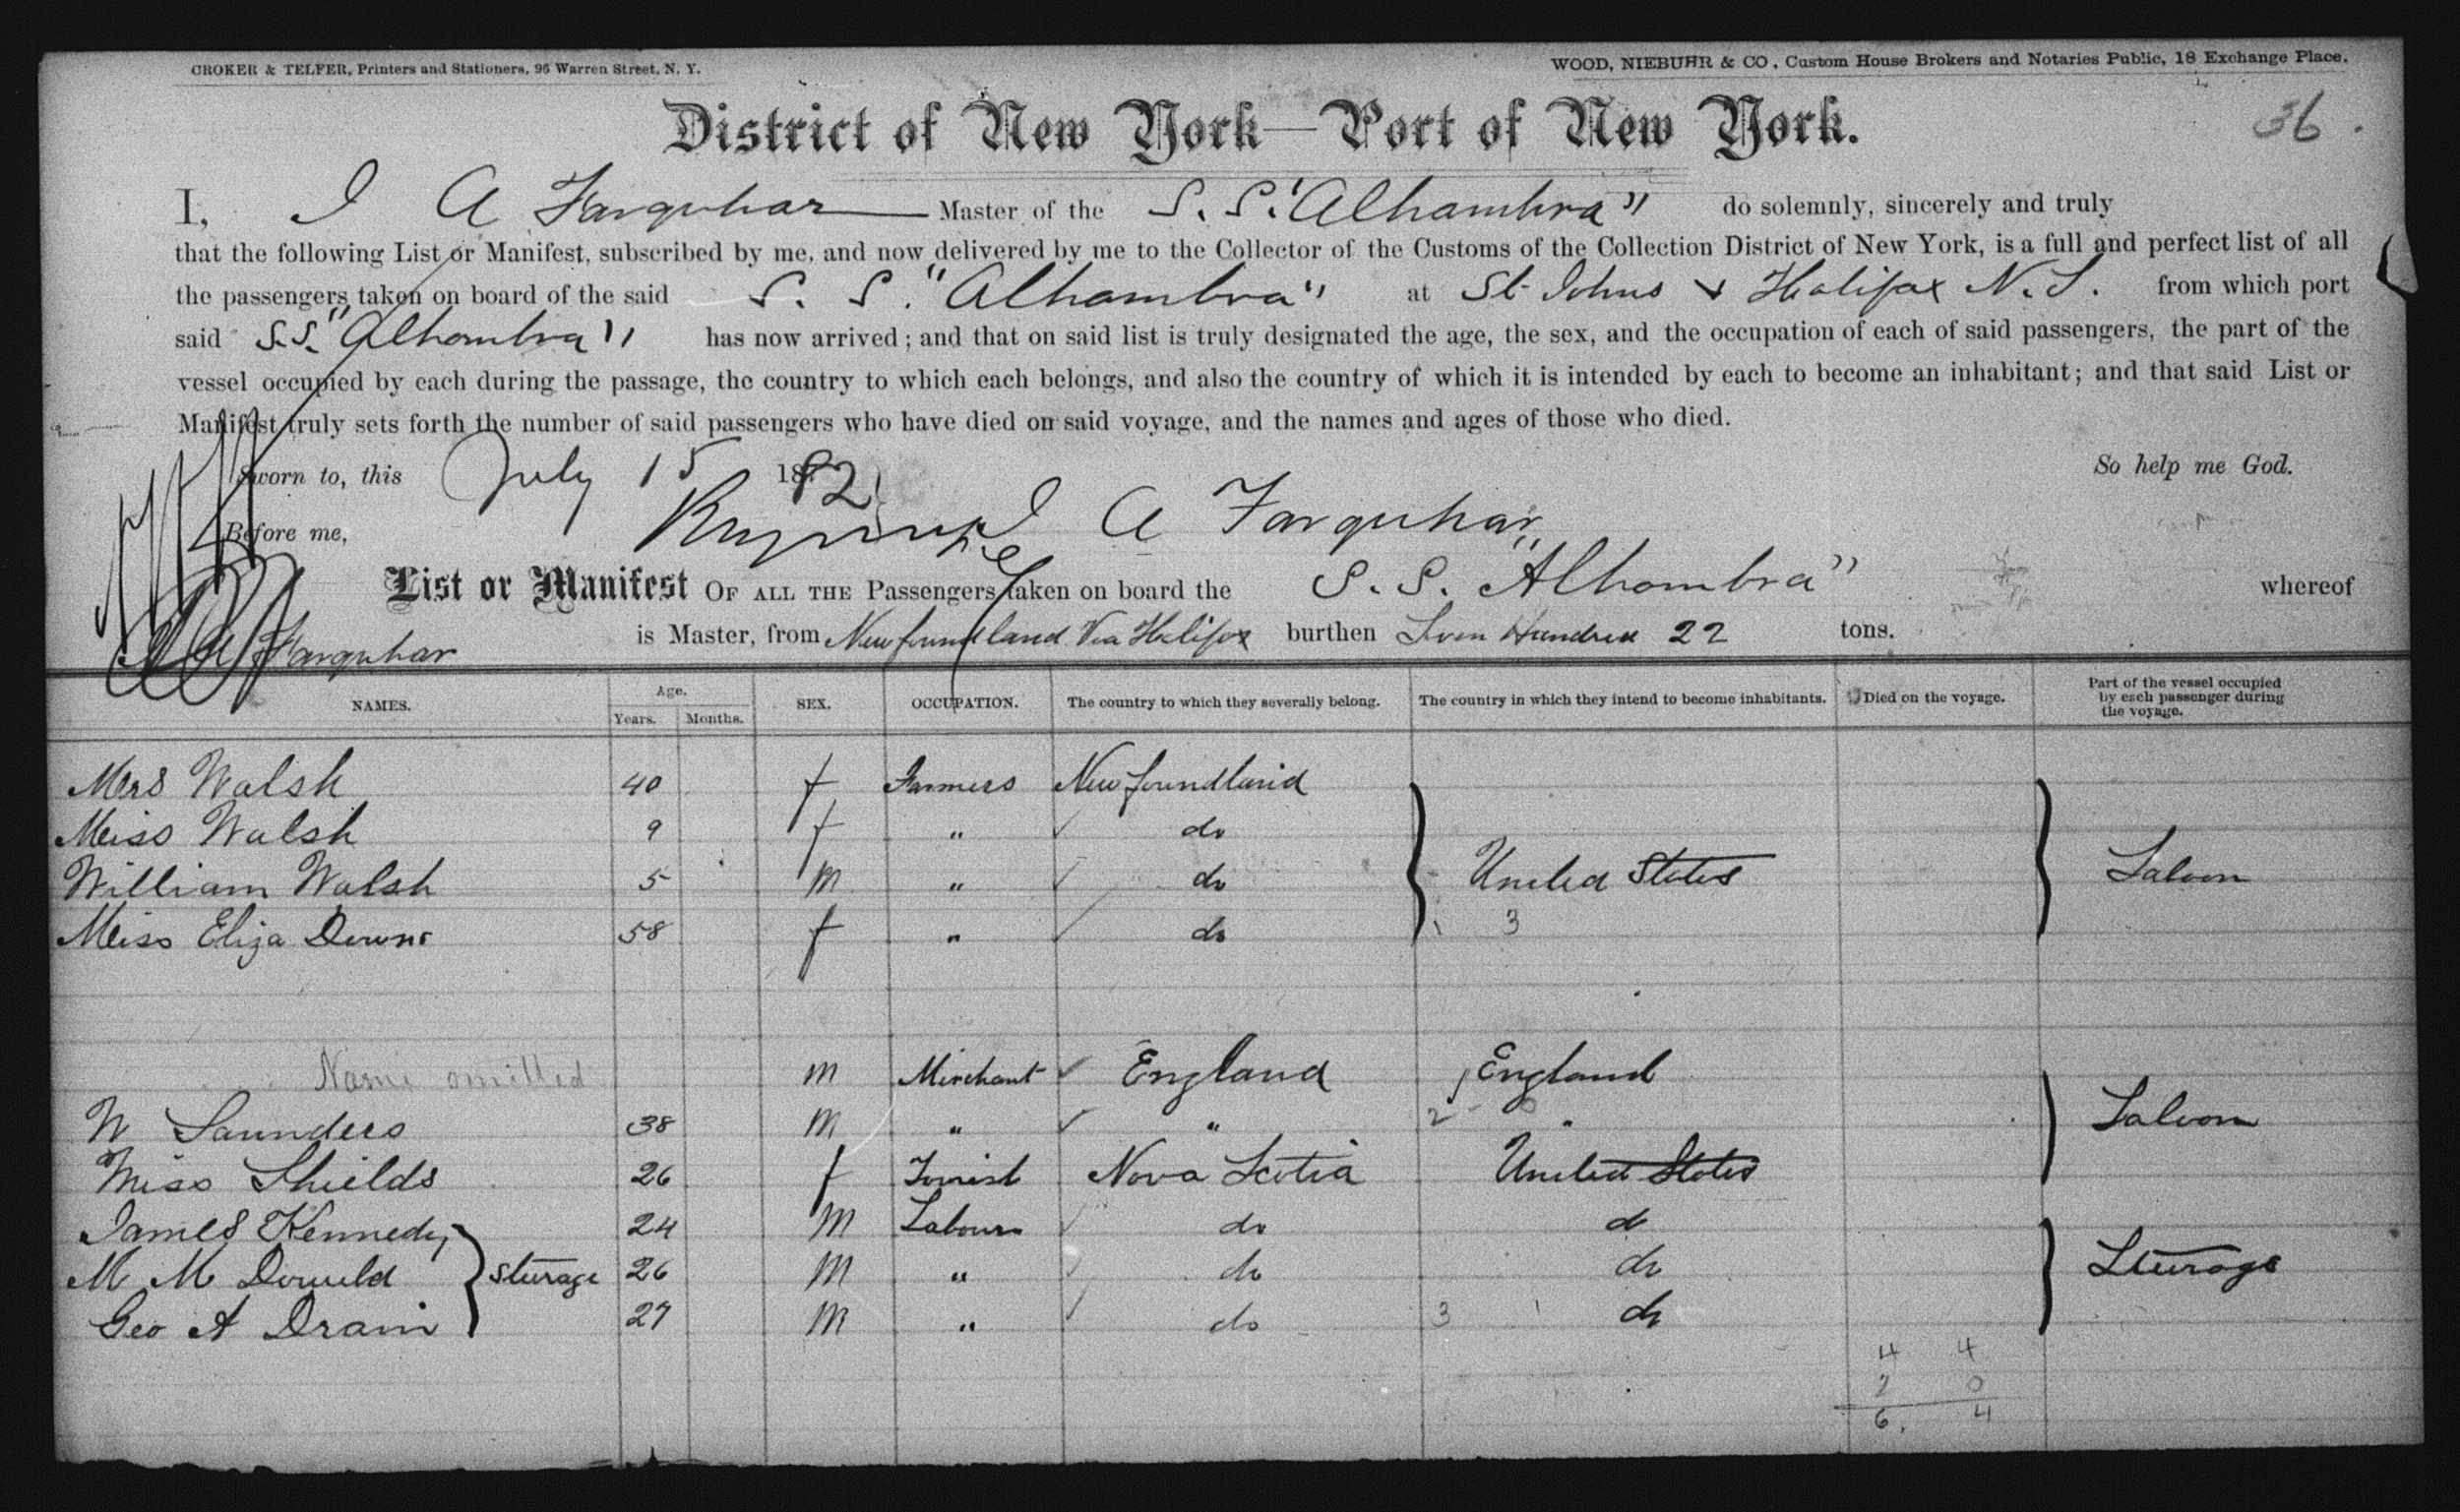 CROKER & TELFER, Printers and Stationers, 96 Warren Street, N. Y.
WOOD, NIEBUHR & CO, Custom House Brokers and Notaries Public, 18 Exchange Place.
36
District of New York—Port of New York.
I, J A Farquhar Master of the S. S. "Alhambra" do solemnly, sincerely and truly
that the following List or Manifest, subscribed by me, and now delivered by me to the Collector of the Customs of the Collection District of New York, is a full and perfect list of all
the passengers taken on board of the said S. S. "Alhambra" at St Johns & Halifax N.S. from which port
said S.S. "Alhambra" has now arrived; and that on said list is truly designated the age, the sex, and the occupation of each of said passengers, the part of the
vessel occupied by each during the passage, the country to which each belongs, and also the country of which it is intended by each to become an inhabitant; and that said List or
Manifest truly sets forth the number of said passengers who have died on said voyage, and the names and ages of those who died.
Sworn to, this July 15 1882 So help me God.
Before me, J A Farquhar
List or Manifest OF ALL THE Passengers taken on board the S. S. "Alhambra" whereof
Farquhar is Master, from Newfoundland Via Halifax burthen Seven Hundred 22 tons.
NAMES. Age. Years. Months. SEX. OCCUPATION. The country to which they severally belong. The country in which they intend to become inhabitants. Died on the voyage. Part of the vessel occupied by each passenger during the voyage.
Mrs Walsh 40 f Farmers Newfoundland
Miss Walsh 9 f " do
William Walsh 5 M " do United States Saloon
Miss Eliza Downs 58 f " do 3
Name omitted M Merchant England England
W Saunders 38 M " " 2 " Saloon
Miss Shields 26 f Tourist Nova Scotia United States
James Kennedy 24 M Labours do do
M M Donald sturage 26 M " do do Sturage
Geo A Drain 27 M " do 3 do
4 4
2 0
6. 4